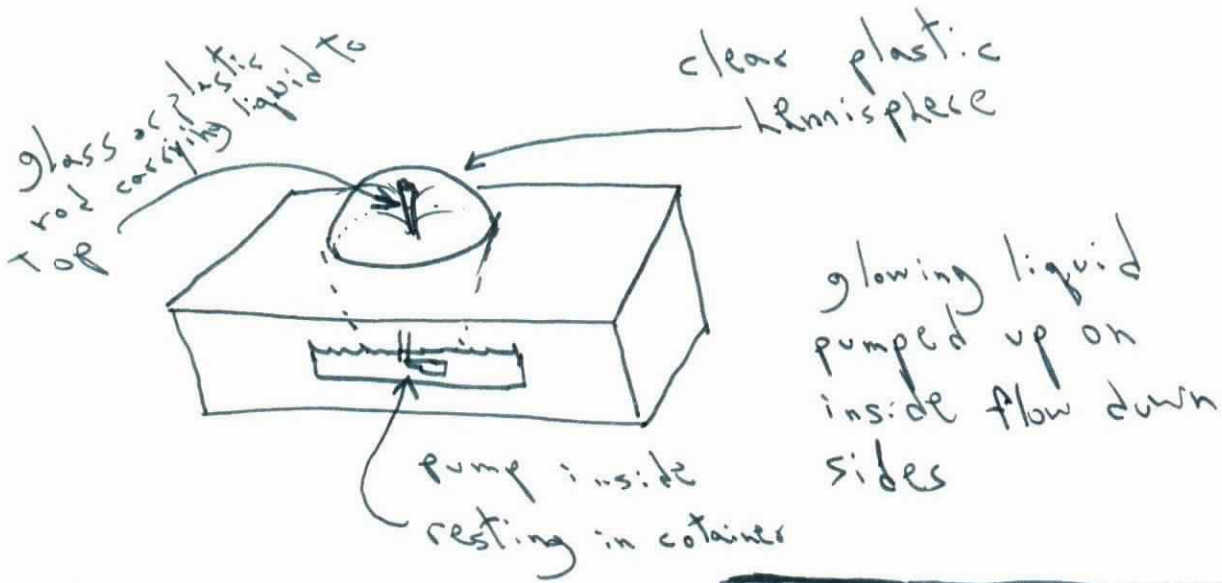 glass or plastic
rod carrying liquid to
top
clear plastic
hemisphere
glowing liquid
pumped up on
inside flow down
sides
pump inside
resting in cotainer